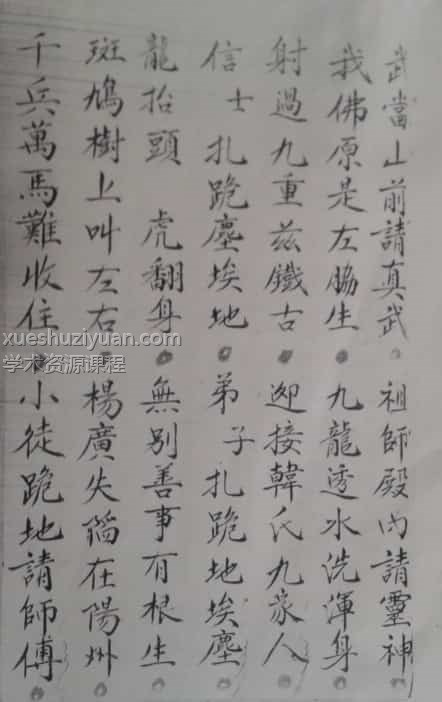 武當山前請真武。祖師殿內請靈神。
我佛原是左脇生。九龍透水洗渾身
射過九重茲鐵古。迎接韓氏九家人。
信士扎跪塵埃地。弟子扎跪地埃塵。
龍抬頭 虎翻身。無別善事有根生。
斑鳩樹上叫左右。楊廣失陷在陽州。
千兵萬馬難收住。小徒跪地請師傅。
xueshuziyuan.com
学术资源课程